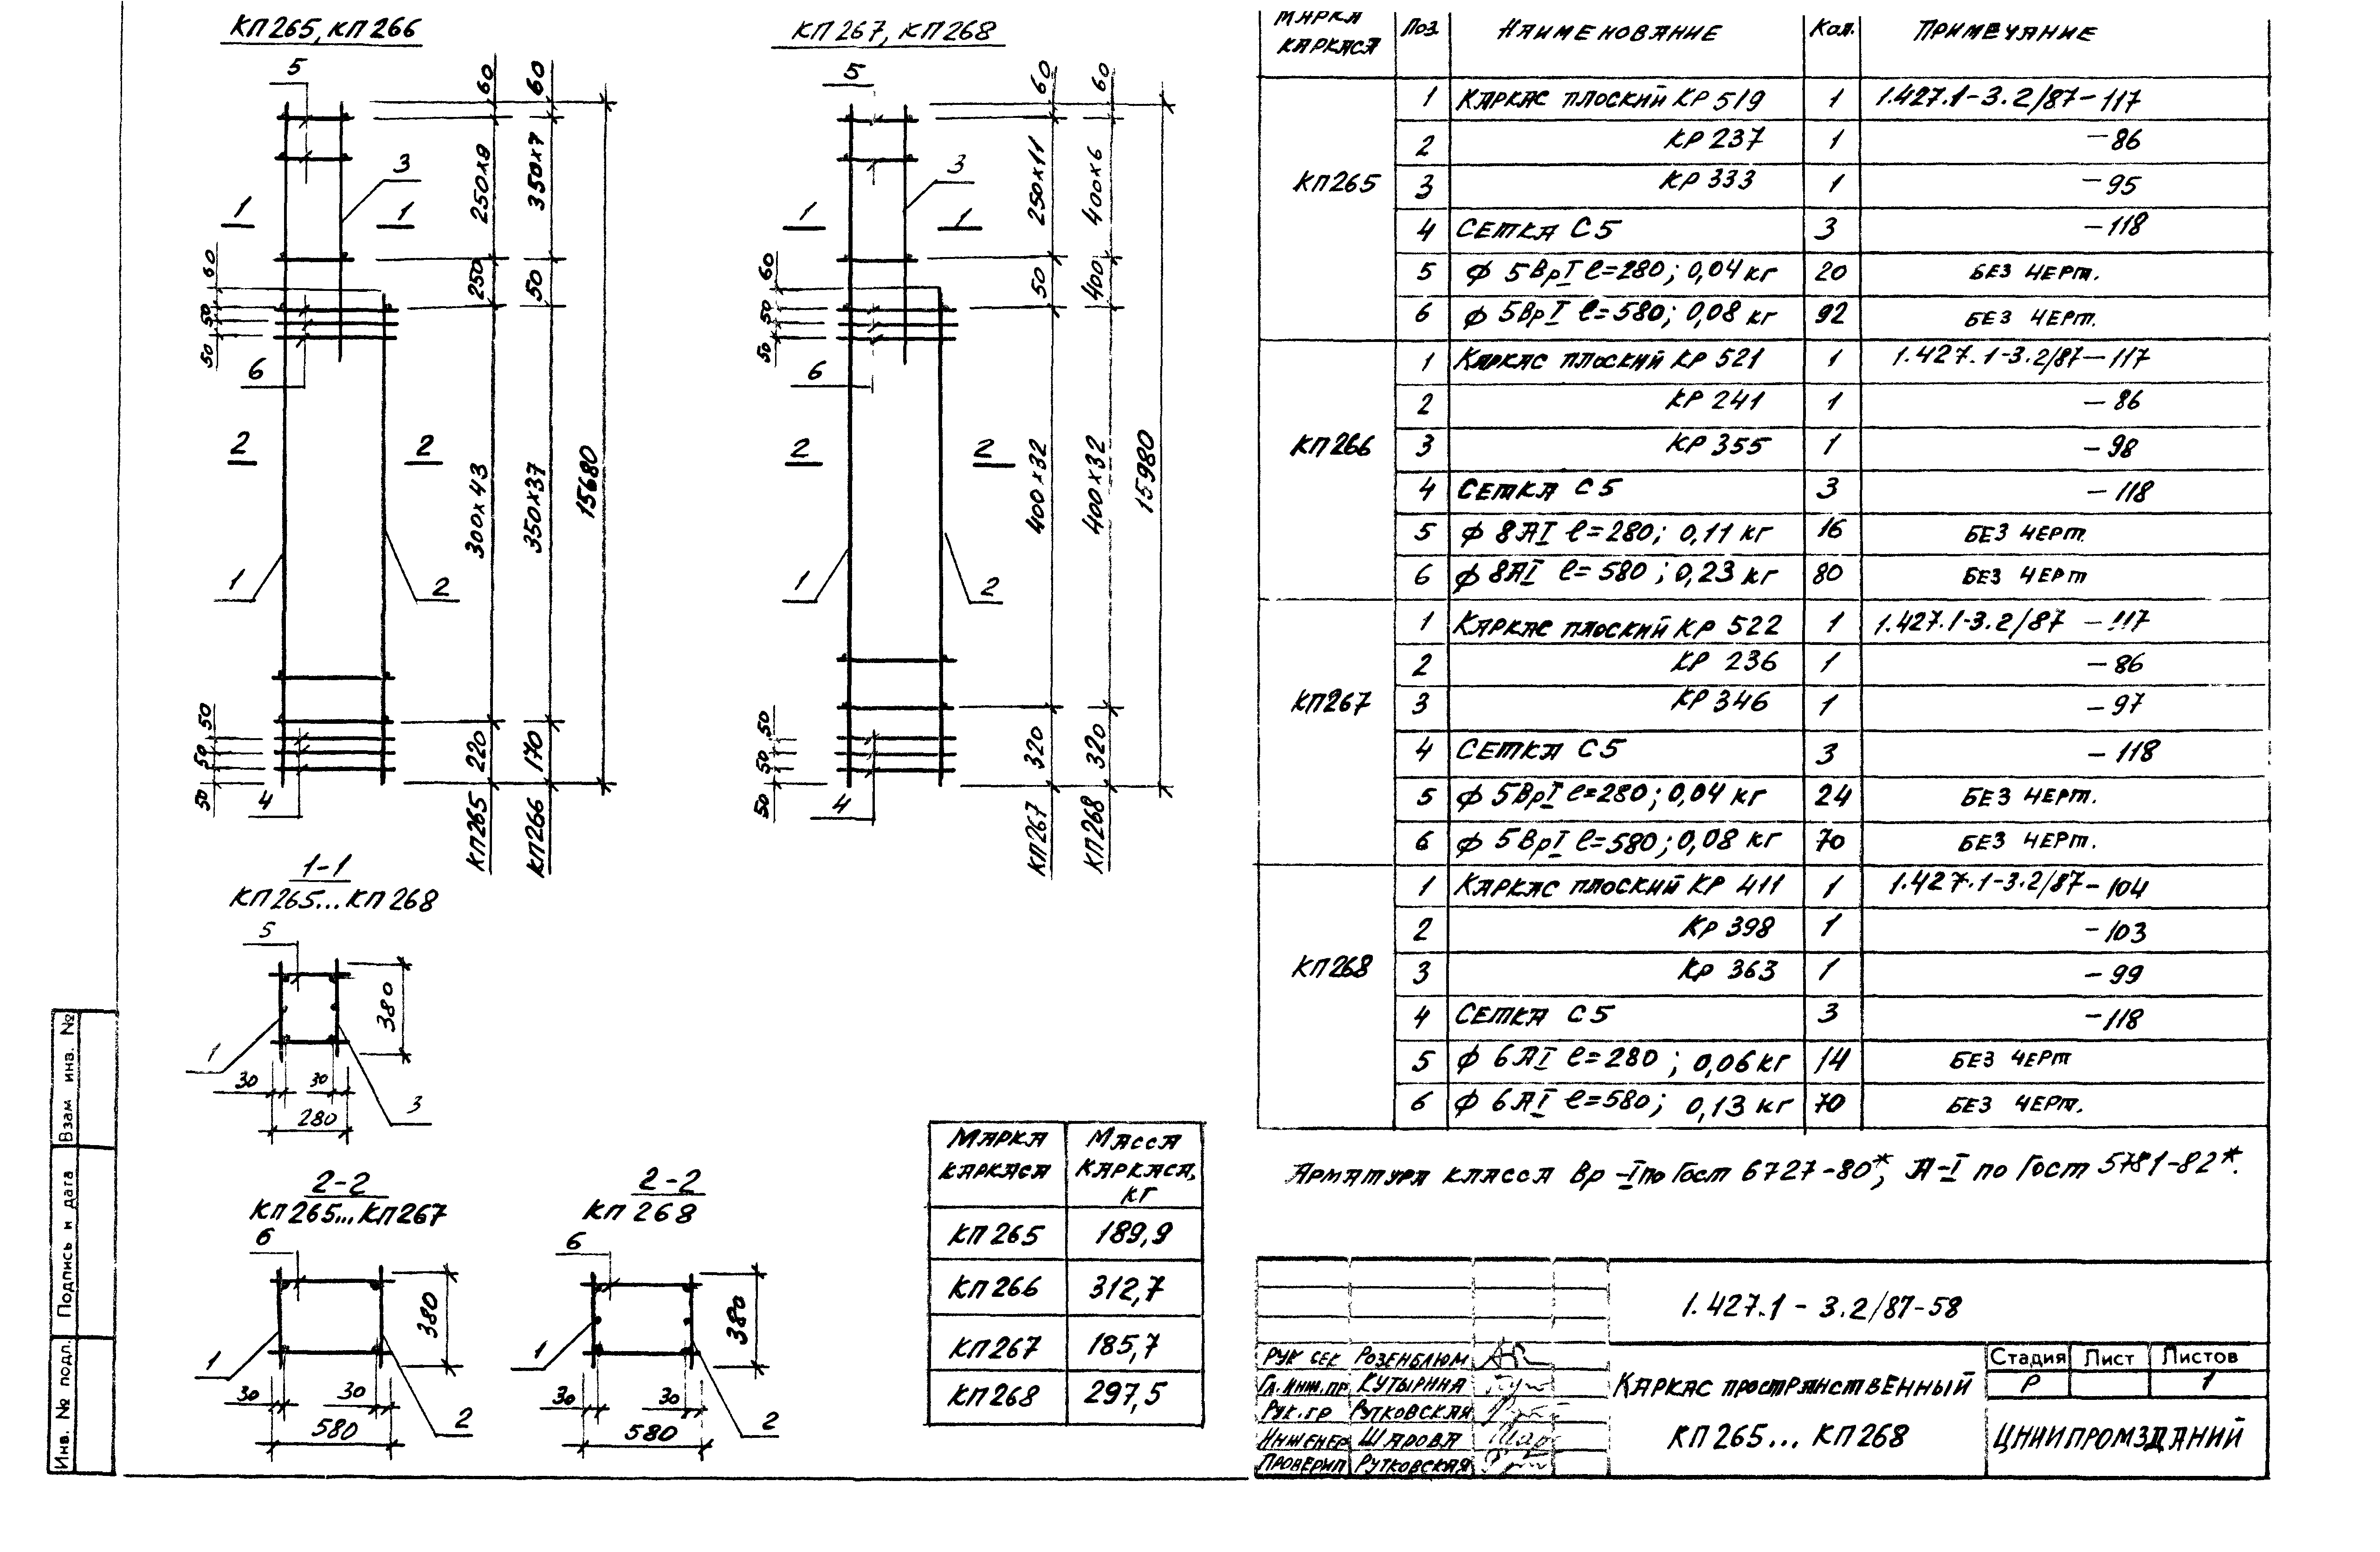 КП265, КП266
5
3
1 1
2 2
6
1 2
4
60
50
50
50
50
50
60
250х9
250
300х43
220
КП265
60
350х7
50
350х37
170
КП266
15680
КП267, КП268
5
3
1 1
2 2
6
1 2
4
60
50
50
50
50
50
60
250х11
50
400х32
320
КП267
60
400х6
400
400х32
320
КП268
15980
1-1
КП265...КП268
5
380
1
30 30
3
280
2-2
КП265...КП267
6
380
1
30 30
2
580
2-2
КП 268
6
380
1
30 30
2
580
Марка каркаса Масса каркаса, кг
КП265 189,9
КП266 312,7
КП267 185,7
КП268 297,5
Марка каркаса Поз. Наименование Кол. Примечание
КП265
1 Каркас плоский КР 519 1 1.427.1-3.2/87-117
2 КР 237 1 -86
3 КР 333 1 -95
4 Сетка С5 3 -118
5 ф 5ВрI ℓ=280; 0,04 кг 20 без черт.
6 ф 5ВрI ℓ=580; 0,08 кг 92 без черт.
КП266
1 Каркас плоский КР 521 1 1.427.1-3.2/87-117
2 КР 241 1 -86
3 КР 355 1 -98
4 Сетка С5 3 -118
5 ф 8АI ℓ=280; 0,11 кг 16 без черт.
6 ф 8АI ℓ=580; 0,23 кг 80 без черт
КП267
1 Каркас плоский КР 522 1 1.427.1-3.2/87-117
2 КР 236 1 -86
3 КР 346 1 -97
4 Сетка С5 3 -118
5 ф 5ВрI ℓ=280; 0,04 кг 24 без черт.
6 ф 5ВрI ℓ=580; 0,08 кг 70 без черт.
КП268
1 Каркас плоский КР 411 1 1.427.1-3.2/87-104
2 Кр 398 1 -103
3 Кр 363 1 -99
4 Сетка С5 3 -118
5 ф 6АI ℓ=280; 0,06 кг 14 без черт
6 ф 6АI ℓ=580; 0,13 кг 70 без черт.
Арматура класса Вр-I по Гост 6727-80*, А-I по Гост 5781-82*.
1.427.1-3.2/87-58
Рук сек Розенблюм
Гл.инж.пр Кутырина
Рук.гр Рутковская
Инженер Шарова
Проверил Рутковская
Каркас пространственный
КП265... КП268
Стадия Лист Листов
Р 1
ЦНИИПРОМЗДАНИЙ
Взам инв. №
Подпись и дата
Инв. № подл.